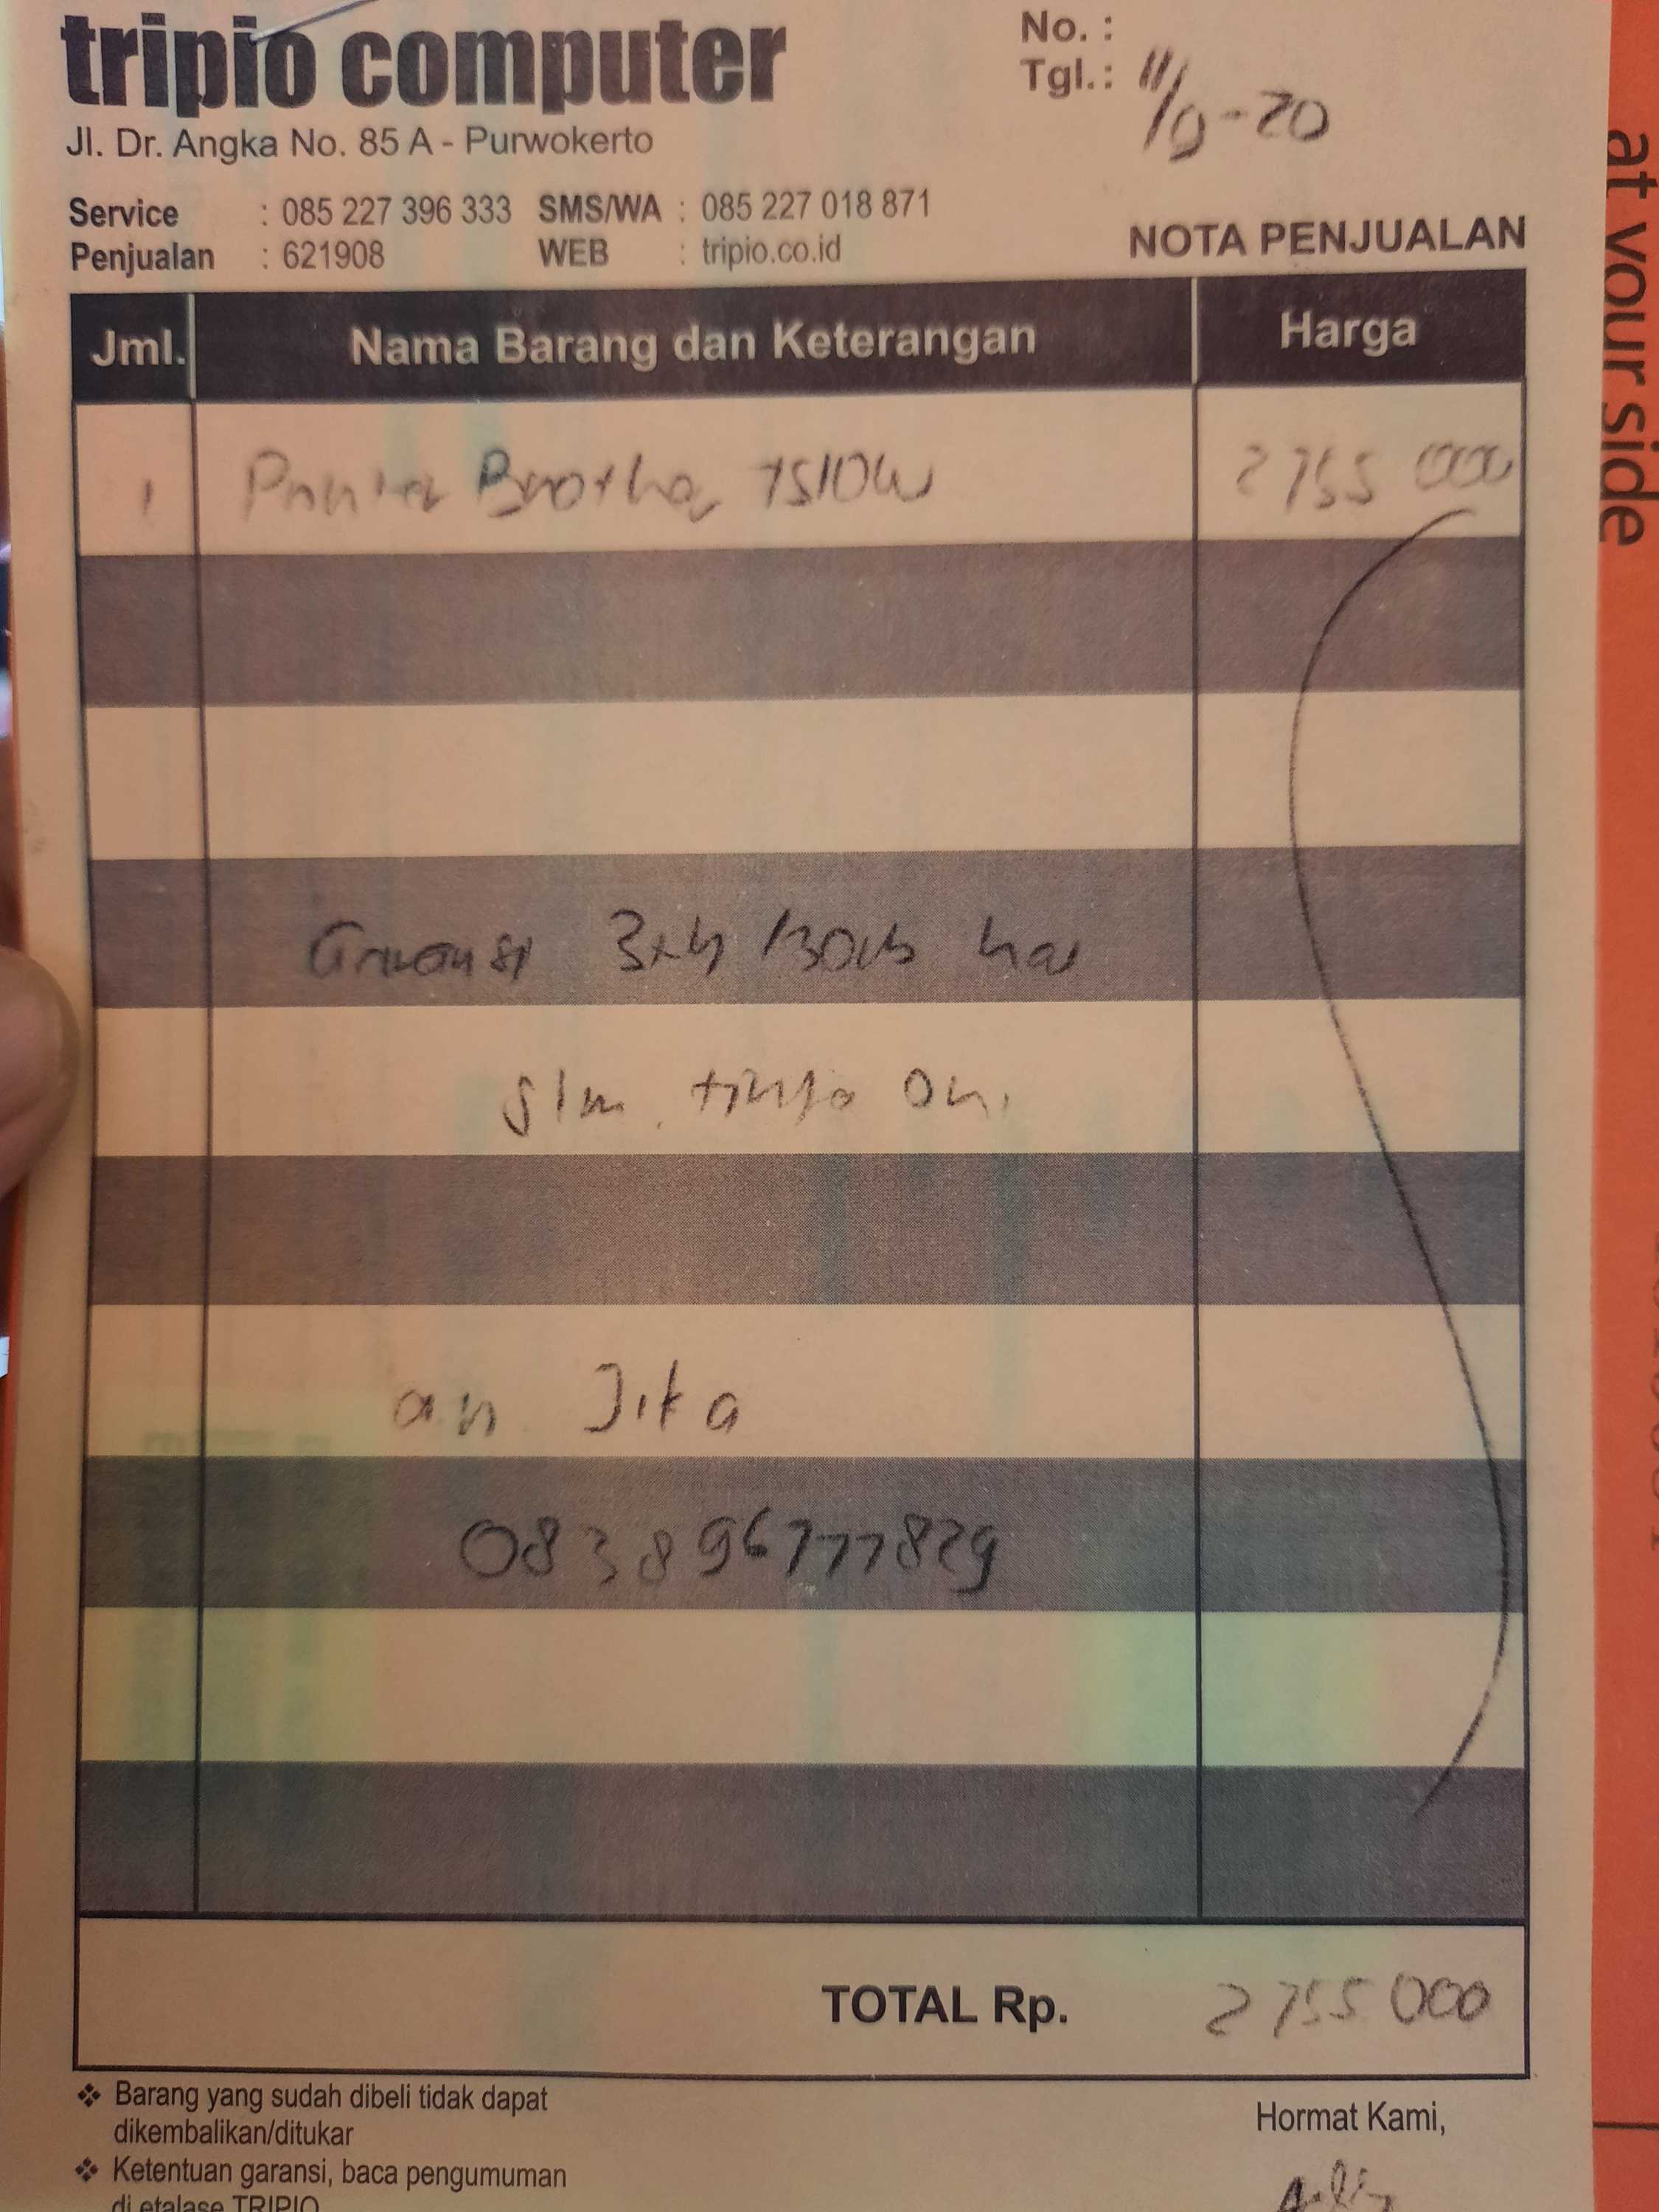 tripio computer
Jl. Dr. Angka No. 85 A - Purwokerto
No. :
Tgl. : 11/9-20
Service : 085 227 396 333 SMS/WA : 085 227 018 871
Penjualan : 621908 WEB : tripio.co.id
NOTA PENJUALAN
Jml. Nama Barang dan Keterangan Harga
1 Printer Brother T510W 2755 000
Garansi 3th
tinta ori
an Jika
083896777829
TOTAL Rp. 2755 000
❖ Barang yang sudah dibeli tidak dapat
dikembalikan/ditukar
❖ Ketentuan garansi, baca pengumuman
di etalase TRIPIO
Hormat Kami,
at your side